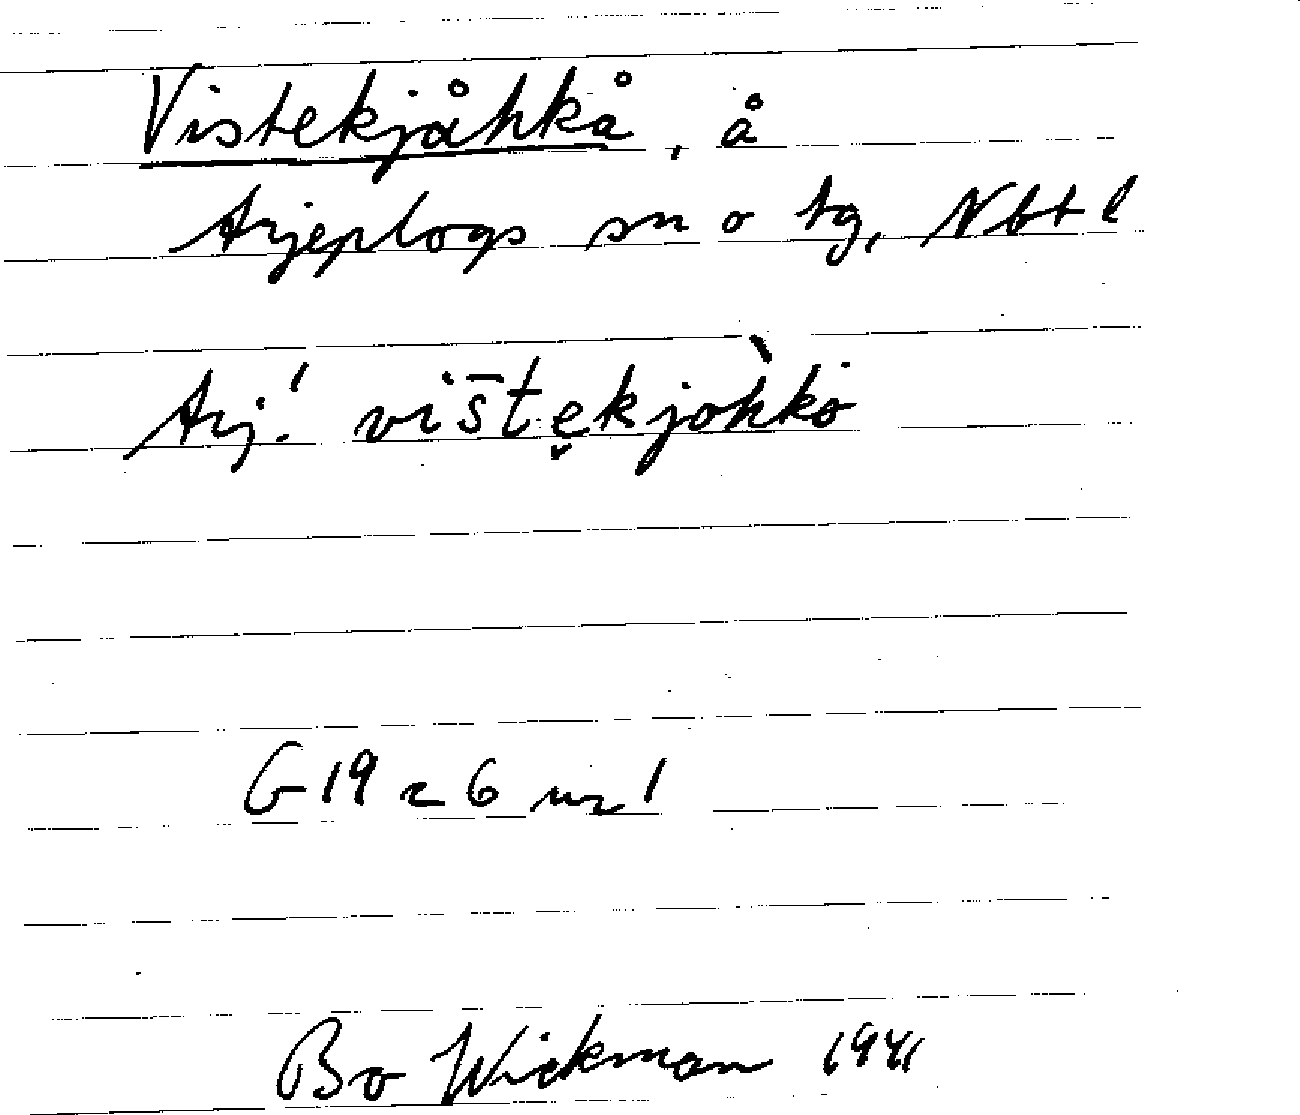 Vistekjåhkå, å
Arjeplogs sn o tg, Nbt l
Arj! vīs̄tękjòhkȯ
G 19 c 6 nr 1
Bo Wickman 1941